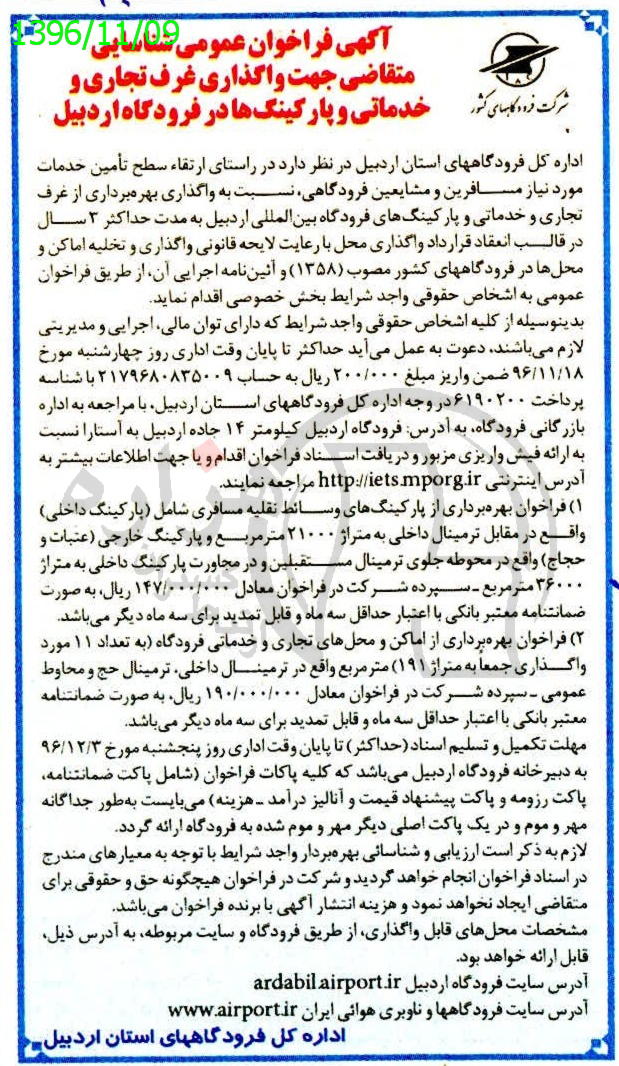 1396/11/09
آگهی فراخوان عمومی شناسایی
متقاضی جهت واگذاری غرف تجاری و
خدماتی و پارکینگ‌ها در فرودگاه اردبیل
شرکت فرودگاههای کشور
اداره کل فرودگاههای استان اردبیل در نظر دارد در راستای ارتقاء سطح تأمین خدمات
مورد نیاز مسافرین و مشایعین فرودگاهی، نسبت به واگذاری بهره‌برداری از غرف
تجاری و خدماتی و پارکینگ‌های فرودگاه بین‌المللی اردبیل به مدت حداکثر ۳ سال
در قالب انعقاد قرارداد واگذاری محل با رعایت لایحه قانونی واگذاری و تخلیه اماکن و
محل‌ها در فرودگاههای کشور مصوب (۱۳۵۸) و آئین‌نامه اجرایی آن، از طریق فراخوان
عمومی به اشخاص حقوقی واجد شرایط بخش خصوصی اقدام نماید.
بدینوسیله از کلیه اشخاص حقوقی واجد شرایط که دارای توان مالی، اجرایی و مدیریتی
لازم می‌باشند، دعوت به عمل می‌آید حداکثر تا پایان وقت اداری روز چهارشنبه مورخ
۹۶/۱۱/۱۸ ضمن واریز مبلغ ۲۰۰/۰۰۰ ریال به حساب ۲۱۷۹۶۸۰۸۳۵۰۰۹ با شناسه
پرداخت ۶۱۹۰۲۰۰ در وجه اداره کل فرودگاههای استان اردبیل، با مراجعه به اداره
بازرگانی فرودگاه، به آدرس: فرودگاه اردبیل کیلومتر ۱۴ جاده اردبیل به آستارا نسبت
به ارائه فیش واریزی مزبور و دریافت اسناد فراخوان اقدام و یا جهت اطلاعات بیشتر به
آدرس اینترنتی http://iets.mporg.ir مراجعه نمایند.
۱) فراخوان بهره‌برداری از پارکینگ‌های وسائط نقلیه مسافری شامل (پارکینگ داخلی)
واقع در مقابل ترمینال داخلی به متراژ ۲۱۰۰۰ مترمربع و پارکینگ خارجی (عتبات و
حجاج) واقع در محوطه جلوی ترمینال مستقبلین و در مجاورت پارکینگ داخلی به متراژ
۳۶۰۰۰ مترمربع ـ سپرده شرکت در فراخوان معادل ۱۴۷/۰۰۰/۰۰۰ ریال، به صورت
ضمانتنامه معتبر بانکی با اعتبار حداقل سه ماه و قابل تمدید برای سه ماه دیگر می‌باشد.
۲) فراخوان بهره‌برداری از اماکن و محل‌های تجاری و خدماتی فرودگاه (به تعداد ۱۱ مورد
واگذاری جمعاً به متراژ ۱۹۱) متر مربع واقع در ترمینال داخلی، ترمینال حج و محاوط
عمومی ـ سپرده شرکت در فراخوان معادل ۱۹۰/۰۰۰/۰۰۰ ریال، به صورت ضمانتنامه
معتبر بانکی با اعتبار حداقل سه ماه و قابل تمدید برای سه ماه دیگر می‌باشد.
مهلت تکمیل و تسلیم اسناد (حداکثر) تا پایان وقت اداری روز پنجشنبه مورخ ۹۶/۱۲/۳
به دبیرخانه فرودگاه اردبیل می‌باشد که کلیه پاکات فراخوان (شامل پاکت ضمانتنامه،
پاکت رزومه و پاکت پیشنهاد قیمت و آنالیز درآمد ـ هزینه) می‌بایست به‌طور جداگانه
مهر و موم و در یک پاکت اصلی دیگر مهر و موم شده به فرودگاه ارائه گردد.
لازم به ذکر است ارزیابی و شناسائی بهره‌بردار واجد شرایط با توجه به معیارهای مندرج
در اسناد فراخوان انجام خواهد گردید و شرکت در فراخوان هیچگونه حق و حقوقی برای
متقاضی ایجاد نخواهد نمود و هزینه انتشار آگهی با برنده فراخوان می‌باشد.
مشخصات محل‌های قابل واگذاری، از طریق فرودگاه و سایت مربوطه، به آدرس ذیل،
قابل ارائه خواهد بود.
آدرس سایت فرودگاه اردبیل ardabil.airport.ir
آدرس سایت فرودگاهها و ناوبری هوائی ایران www.airport.ir
اداره کل فرودگاههای استان اردبیل